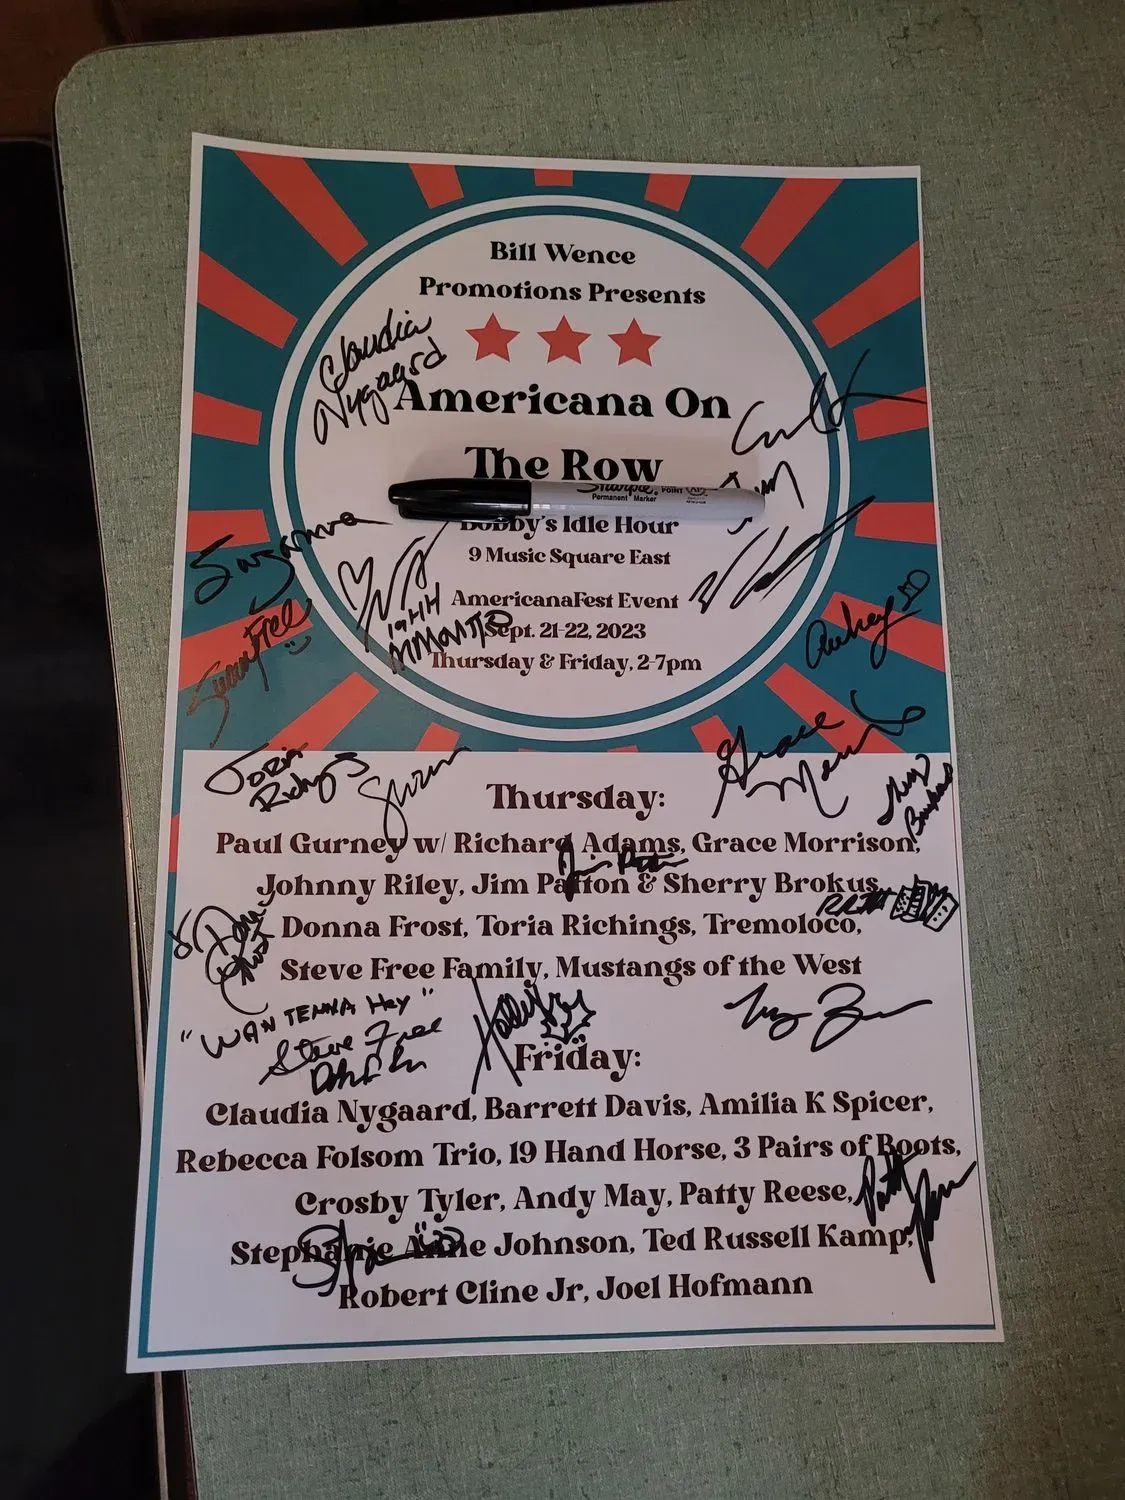 Bill Wence
Promotions Presents
Claudia
Nygaard
Americana On
The Row
Sharpie. POINT AP
Permanent Marker
Bobby's Idle Hour
9 Music Square East
Suzanna
AmericanaFest Event
19HH
Sept. 21-22, 2023
Thursday & Friday, 2-7pm
Aubrey
Toria
Richings
Grace
Thursday:
Paul Gurney w/ Richard Adams, Grace Morrison,
Sherry
Brokus
Johnny Riley, Jim Patton & Sherry Brokus,
Donna Frost, Toria Richings, Tremoloco,
Donna
Frost
Steve Free Family, Mustangs of the West
"WAN TENNA Hey"
Steve Free
Holly
Friday:
Claudia Nygaard, Barrett Davis, Amilia K Spicer,
Rebecca Folsom Trio, 19 Hand Horse, 3 Pairs of Boots,
Crosby Tyler, Andy May, Patty Reese,
Stephanie Anne Johnson, Ted Russell Kamp,
Robert Cline Jr, Joel Hofmann